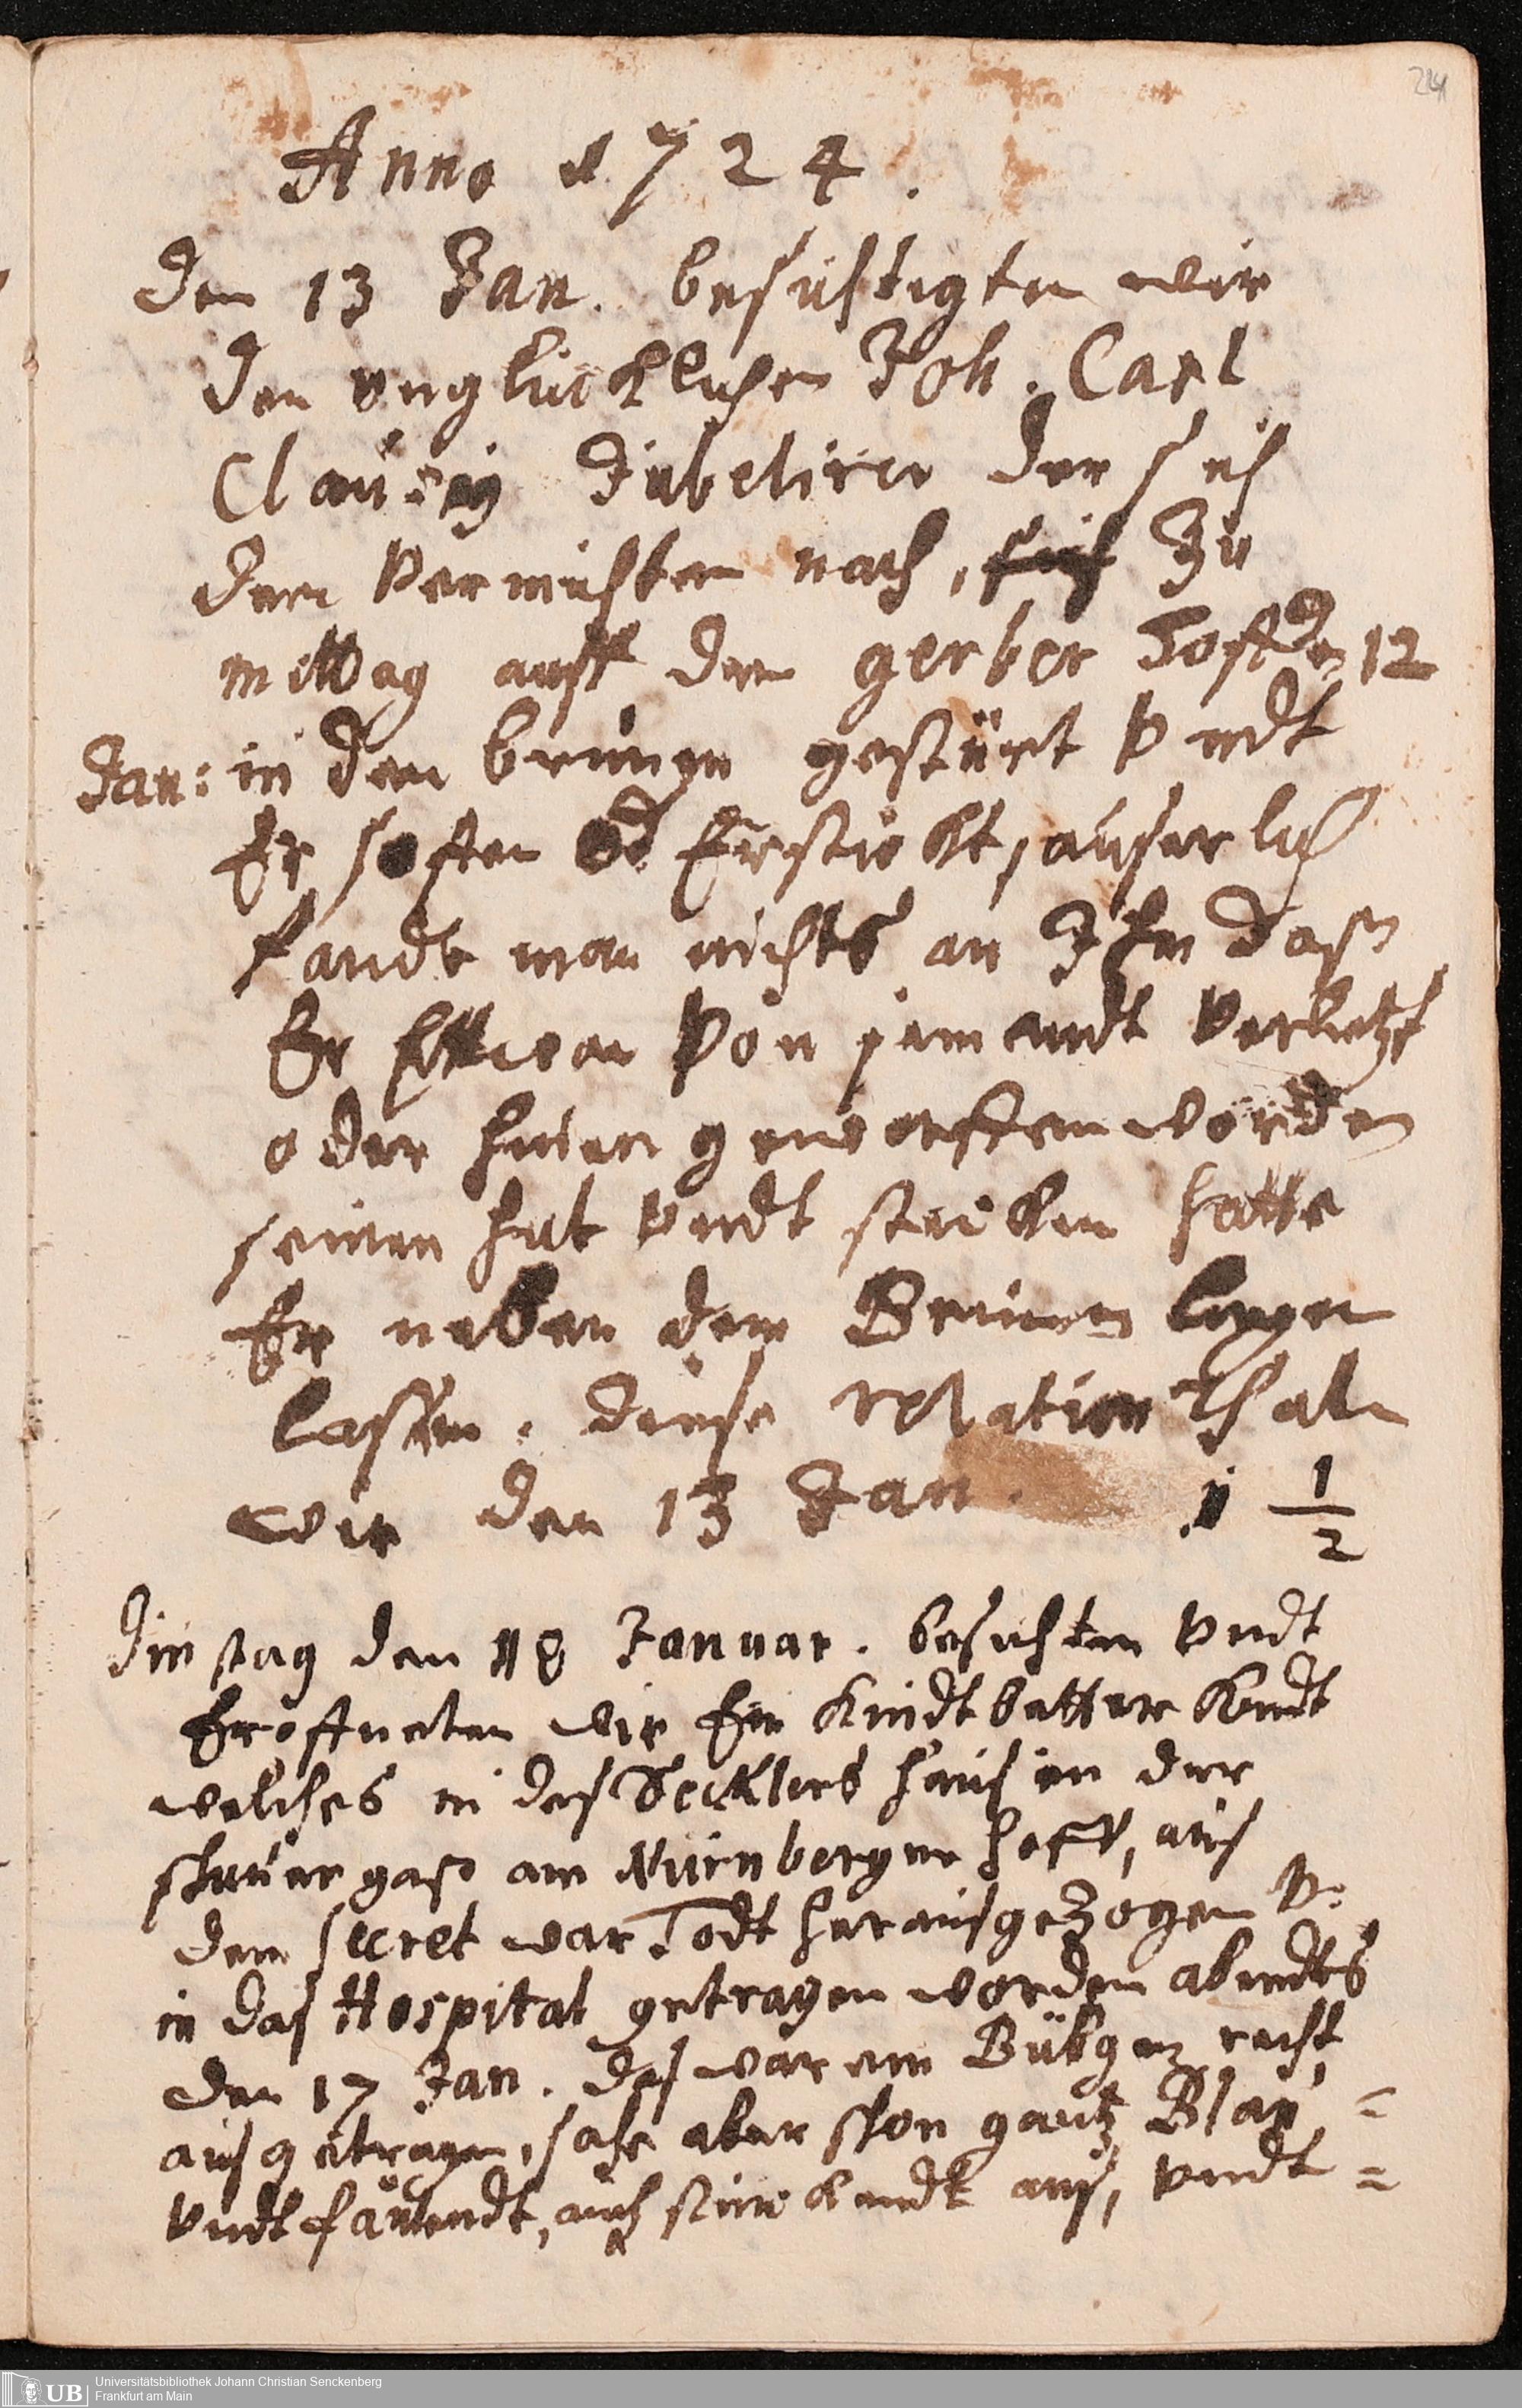 214
Anno 1724.
Den 13 Jan. besichtigten wir
den vnglücklichen Joh. Carl
Jubelirer der sich
dem Vermuthen nach, zu
mittag auff dem gerber den 12
Jan: in den brunen gestürtzt vndt
Er soffen od Erstickt, auserlich
fandt man nichts an Ihm dass
Er Ettwan von jemandt Verletzt
oder hinen geworffen worden
seinen hut vndt stecken hatte
Er neben dem Brunen legen
lassen. diese relation thaten
wir den 13 Jan. 1 1/2
Dinstag den 18 Januar. besichten vndt
Eröffneten wir Ein Kindtbetter Kindt
welches in des Secklers haus in der
schnurgass am Nürnberger hoff, aus
dem secret war Todt herausgezogen v.
in das Hospital getragen worden abendts
den 17 Jan. das war ein Bübgen recht
ausgetragen, sahe aber schon gantz Blau =
vndt faulendt, auch stinckendt aus, vndt =
UB Universitätsbibliothek Johann Christian Senckenberg
Frankfurt am Main